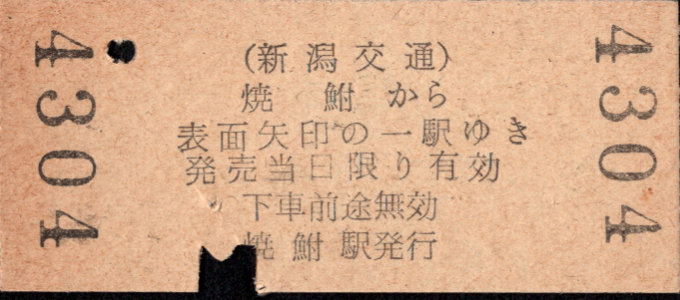 4304
(新潟交通)
焼鮒から
表面矢印の一駅ゆき
発売当日限り有効
下車前途無効
焼鮒駅発行
4304